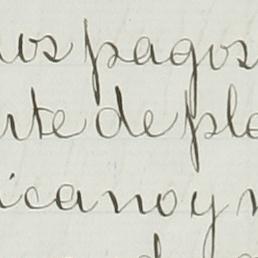 os pagos
rte de pla
icano y